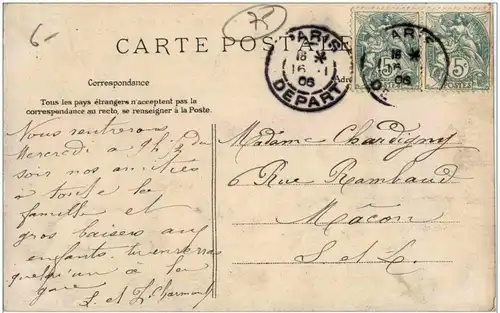 6-
75
CARTE POSTALE
PARIS
18 *
16 -1
06
DEPART
ARIS
18 *
06
DEPA
5c
POSTES
5c
POSTES
Correspondance
Adre
Tous les pays étrangers n'acceptent pas la
correspondance au recto, se renseigner à la Poste.
Nous rentrerons
Mercredi à 9h ½ du
soir nos amitiés
à toute la
famille et
gros baisers aux
enfants. tu enverras
quelqu'un à la
gare
L. et L. Charmont
Madame Chardigny
6 Rue Rambaud
Mâcon
S. et L.